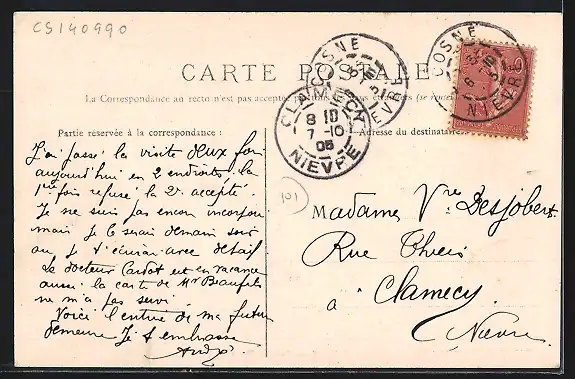 CS140990
CARTE POSTALE
La Correspondance au recto n'est pas acceptée
Partie réservée à la correspondance :
Adresse du destinataire
COSNE
NIEVRE
COSNE
NIEVRE
CLAMECY
8 10
7 -10
05
NIEVRE
101
J'ai passé la visite deux fois
aujourd'hui en 2 endroits. la
1ere fois refusé la 2e accepté.
Je ne suis pas encore incorporé
mais je le serai demain soir
ou je t'écrirai avec détail
Le docteur Cardot est en vacance
aussi la carte de Mr
ne m'a pas servi.
Voici l'entrée de ma future
demeure Je t'embrasse
André
Madame Vve Desjobert
Rue Thiers
à Clamecy
Nièvre